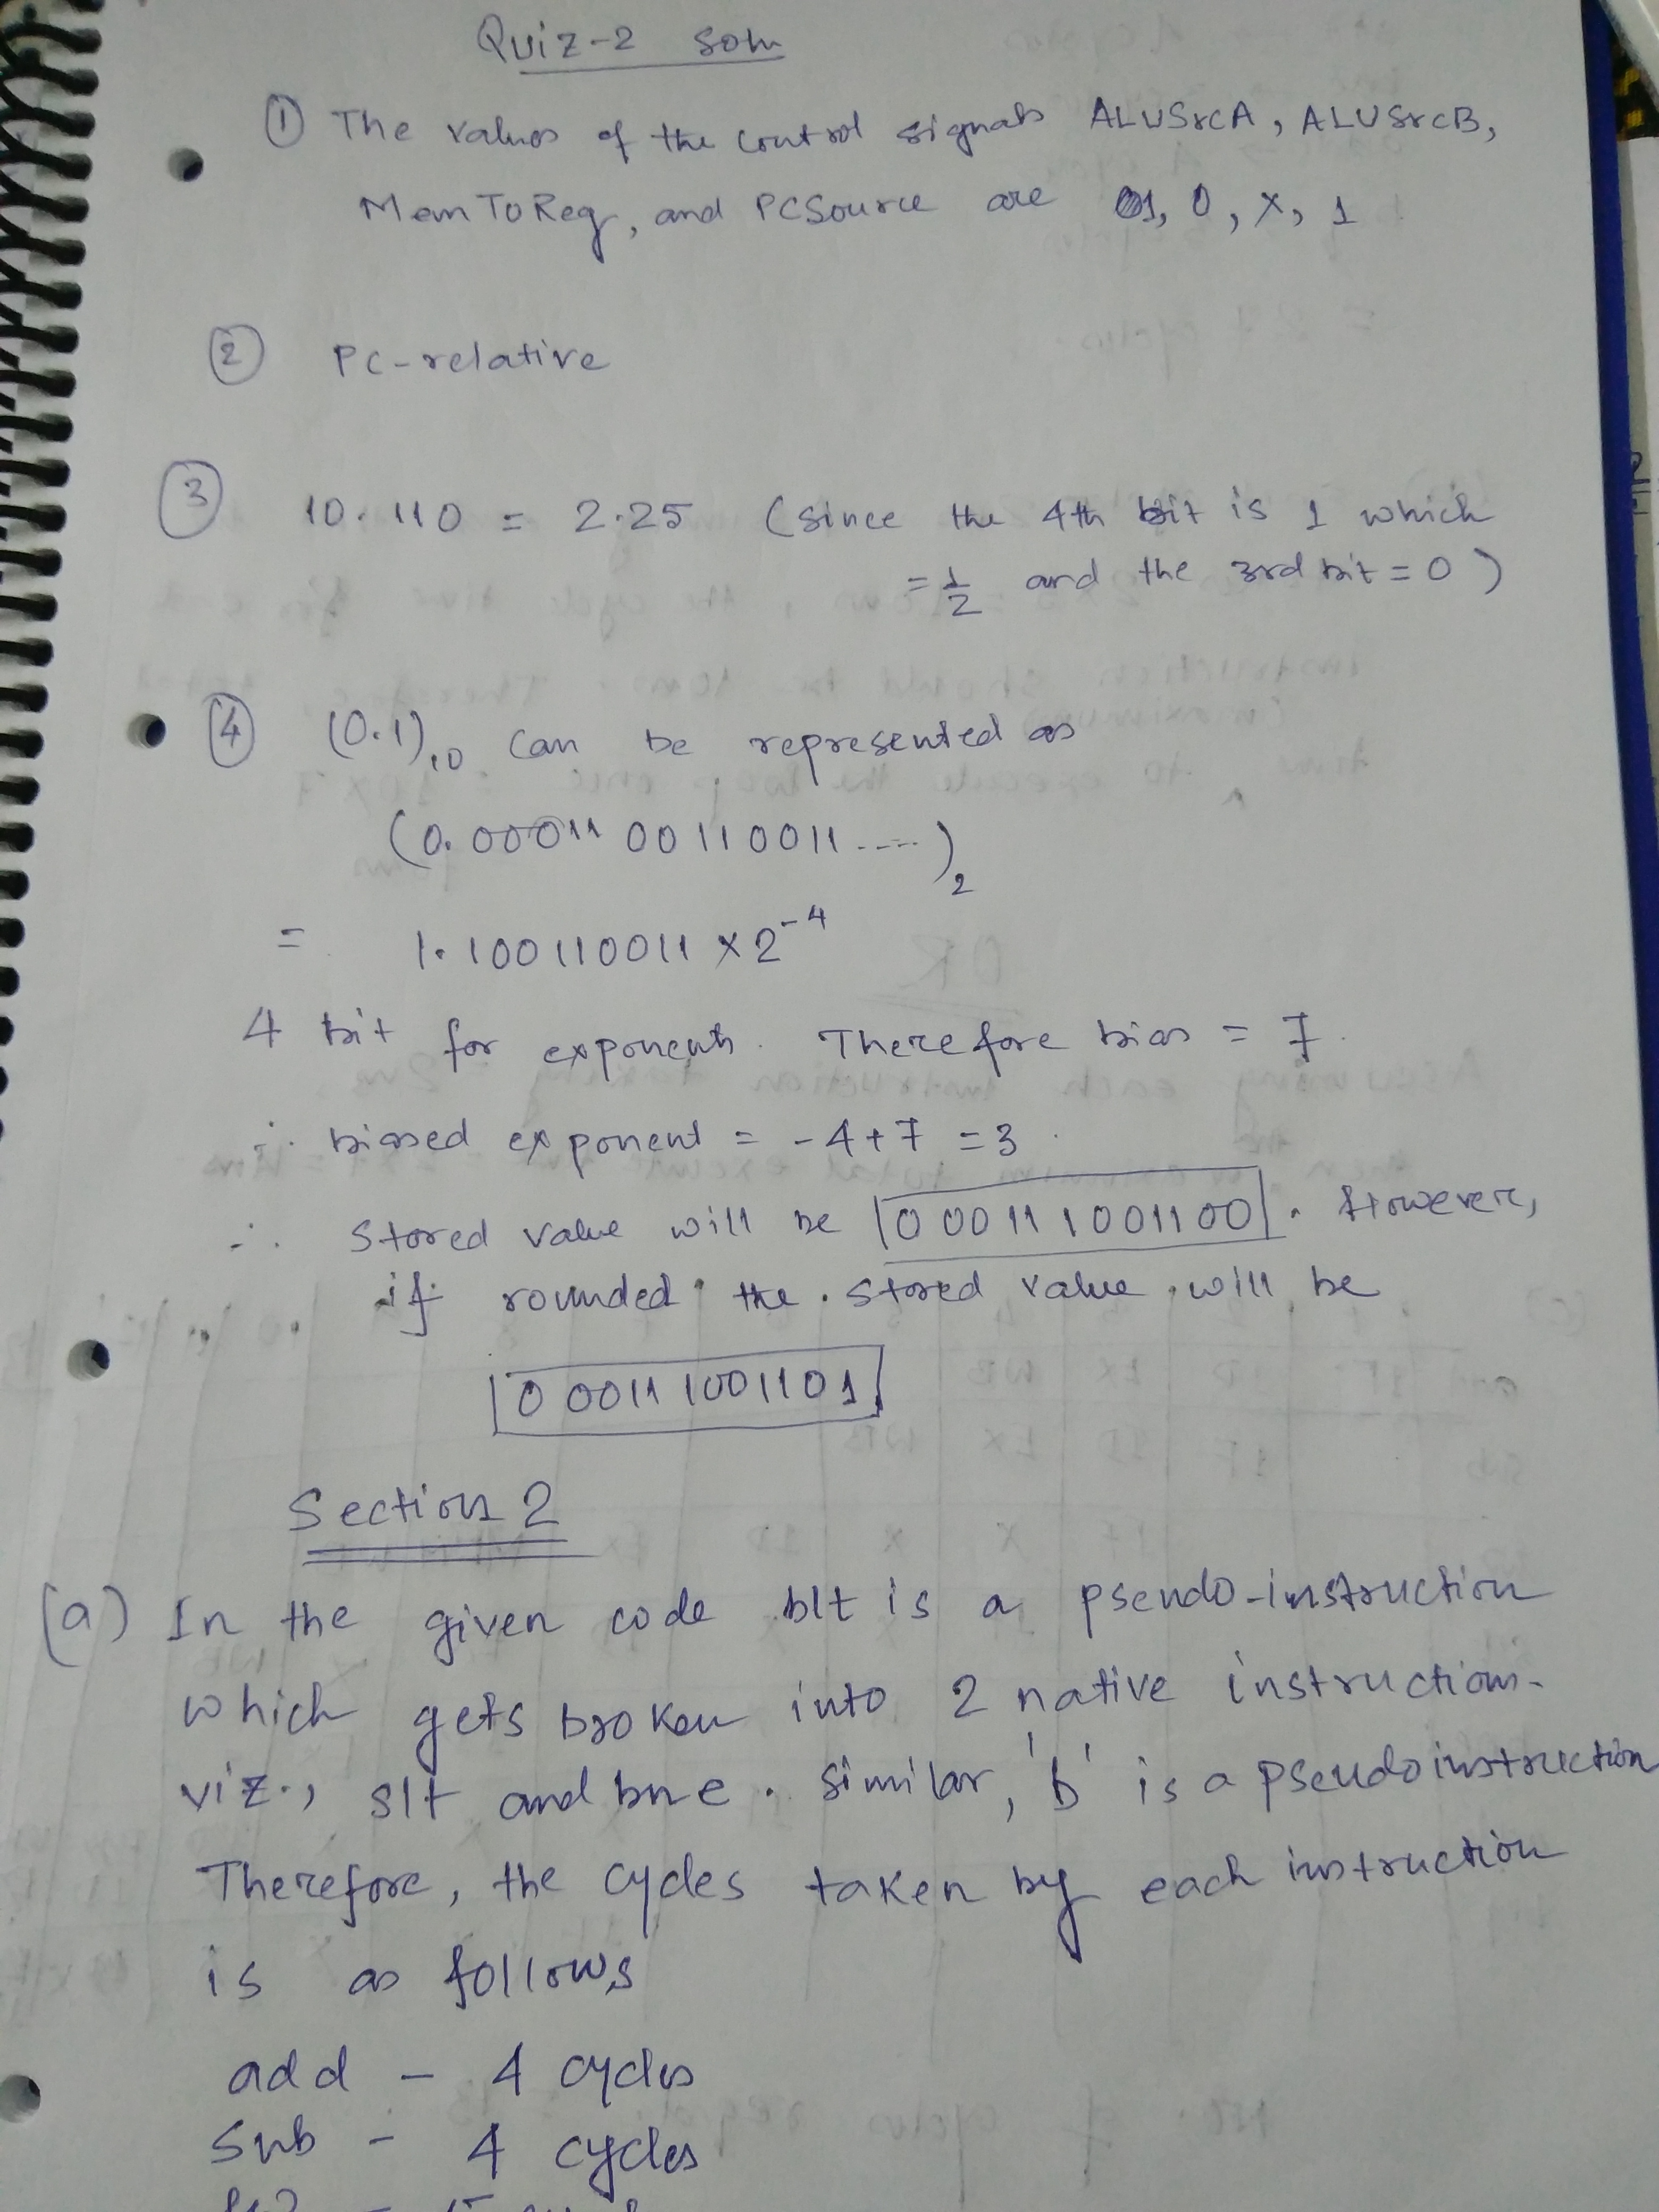 Quiz-2 Soln
① The values of the control signals ALUSrcA, ALUSrcB,
MemToReg, and PCSource are 1, 0, X, 1
② PC-relative
③ 10.110 = 2.25 (since the 4th bit is 1 which
= 1/2 and the 3rd bit = 0)
④ (0.1)₁₀ can be represented as
(0.0001100110011....)₂
= 1.100110011 × 2⁻⁴
4 bit for exponent. Therefore bias = 7.
∴ biased exponent = -4+7 = 3.
∴ Stored value will be 0 0011 1001100. However,
if rounded the stored value will be
0 0011 1001101
Section 2
(a) In the given code blt is a pseudo-instruction
which gets broken into 2 native instructions.
viz., slt and bne. similar, 'b' is a pseudoinstruction
Therefore, the cycles taken by each instruction
is as follows
add - 4 cycles
Sub - 4 cycles